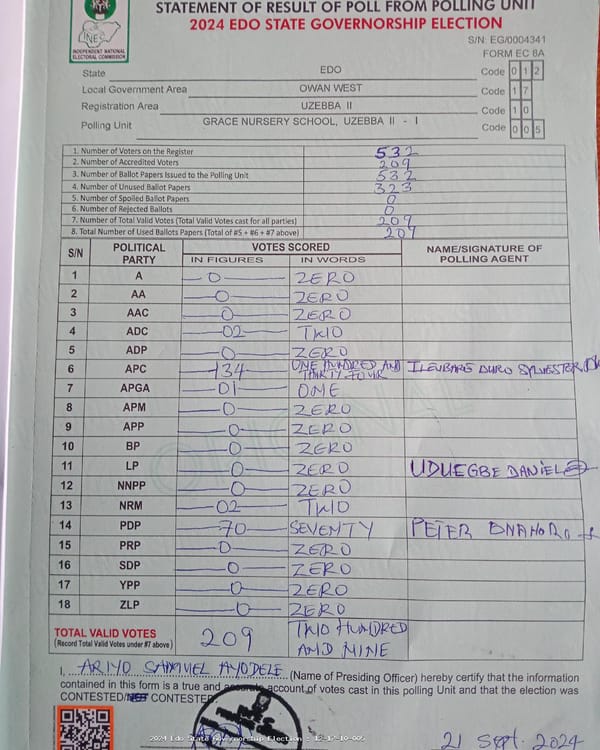 STATEMENT OF RESULT OF POLL FROM POLLING UNIT
2024 EDO STATE GOVERNORSHIP ELECTION
INEC
INDEPENDENT NATIONAL
ELECTORAL COMMISSION
S/N: EG/0004341
FORM EC 8A
State EDO Code 0 1 2
Local Government Area OWAN WEST Code 1 7
Registration Area UZEBBA II Code 1 0
Polling Unit GRACE NURSERY SCHOOL, UZEBBA II - I Code 0 0 5
1. Number of Voters on the Register 532
2. Number of Accredited Voters 209
3. Number of Ballot Papers Issued to the Polling Unit 532
4. Number of Unused Ballot Papers 323
5. Number of Spoiled Ballot Papers 0
6. Number of Rejected Ballots 0
7. Number of Total Valid Votes (Total Valid Votes cast for all parties) 209
8. Total Number of Used Ballots Papers (Total of #5 + #6 + #7 above) 209
S/N POLITICAL PARTY VOTES SCORED NAME/SIGNATURE OF POLLING AGENT
IN FIGURES IN WORDS
1 A 0 ZERO
2 AA 0 ZERO
3 AAC 0 ZERO
4 ADC 02 TWO
5 ADP 0 ZERO
6 APC 134 ONE HUNDRED AND THIRTY FOUR SYLVESTER
7 APGA 01 ONE
8 APM 0 ZERO
9 APP 0 ZERO
10 BP 0 ZERO
11 LP 0 ZERO UDUEGBE DANIEL
12 NNPP 0 ZERO
13 NRM 02 TWO
14 PDP 70 SEVENTY PETER
15 PRP 0 ZERO
16 SDP 0 ZERO
17 YPP 0 ZERO
18 ZLP 0 ZERO
TOTAL VALID VOTES 209 TWO HUNDRED
(Record Total Valid Votes under #7 above) AND NINE
I, ARIYO SAMUEL AYODELE (Name of Presiding Officer) hereby certify that the information
contained in this form is a true and accurate account of votes cast in this polling Unit and that the election was
CONTESTED/NOT CONTESTED
2024 Edo State Governorship Election : 12-17-10-005
21 Sept. 2024